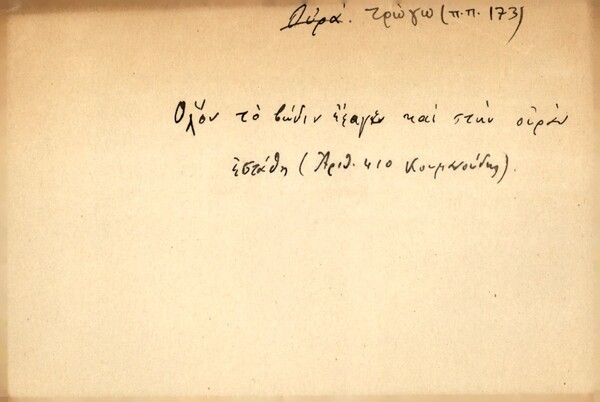 Οὐρά. τρώγω (π.π. 173)
Ὅλον τὸ βώδιν ἔφαγεν καὶ στὴν οὐρὰν
ἐστάθη (Ἀριθ. 410 Κουμανούδης).